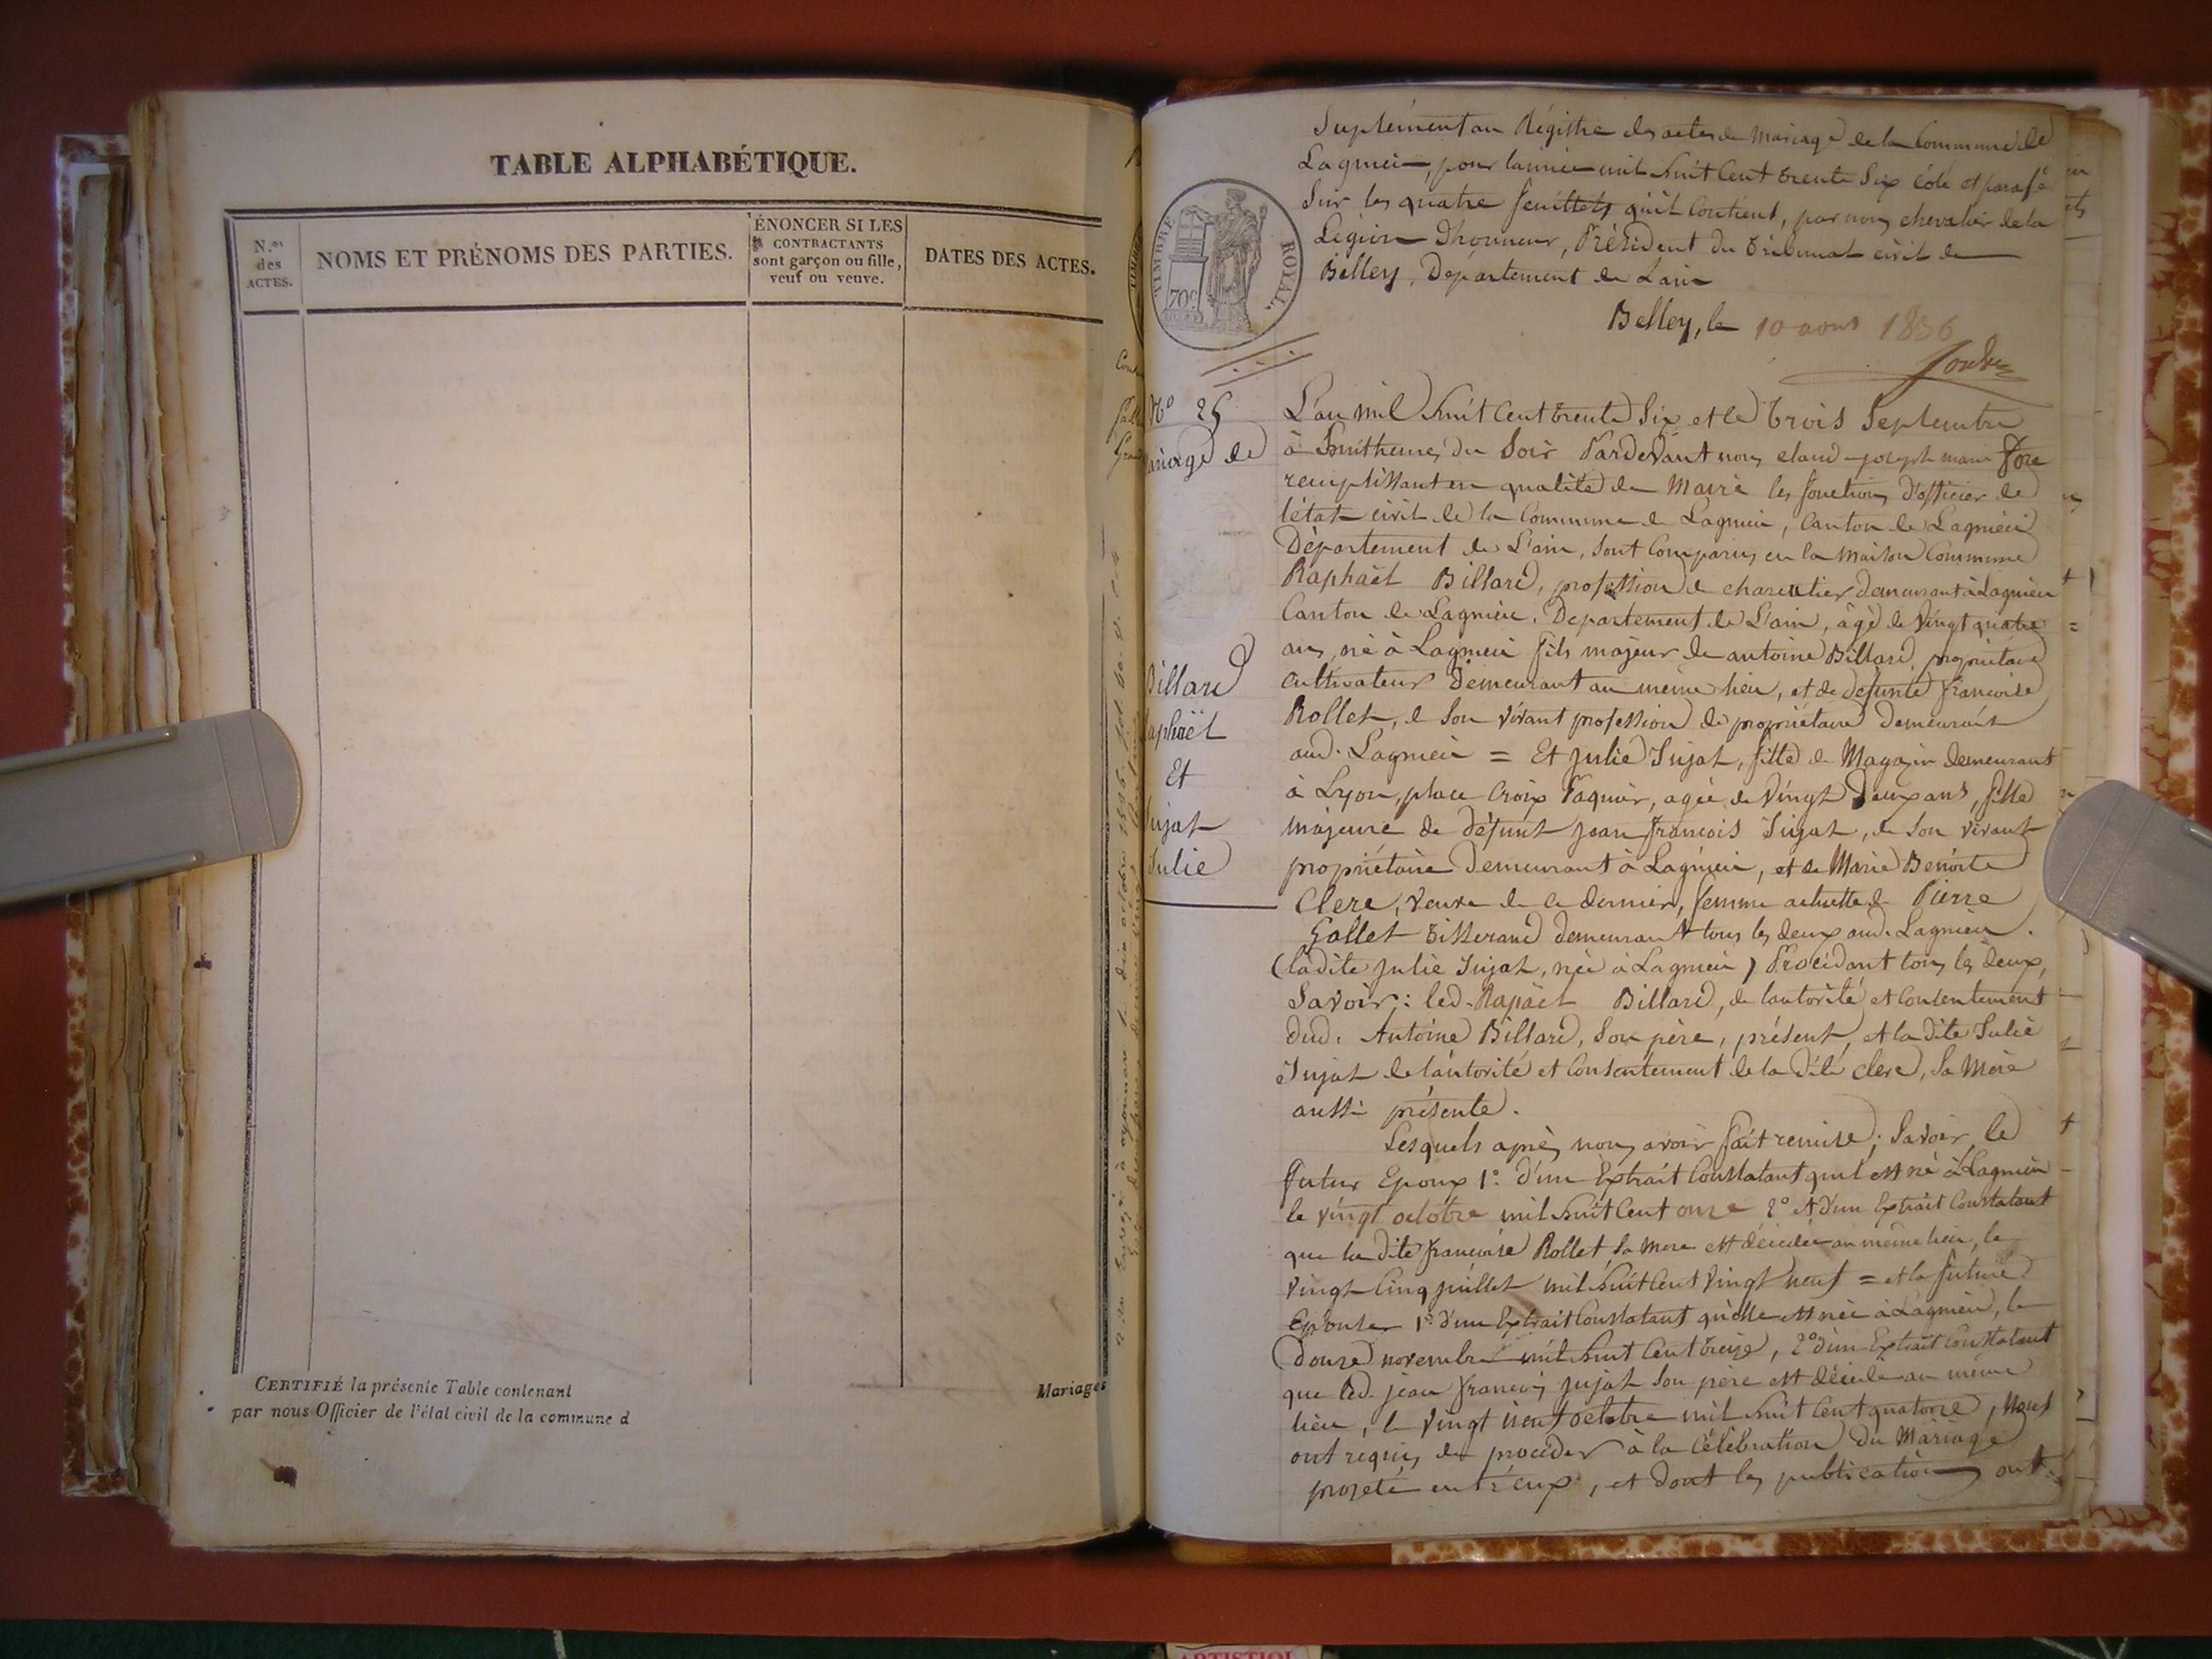 TABLE ALPHABÉTIQUE.
N.os des ACTES.
NOMS ET PRÉNOMS DES PARTIES.
ÉNONCER SI LES CONTRACTANTS sont garçon ou fille, veuf ou veuve.
DATES DES ACTES.
CERTIFIÉ la présente Table contenant
par nous Officier de l'état civil de la commune d
Mariages
TIMBRE ROYAL.
70c
Suplément au Régistre des actes de Mariage de la Commune de
Lagnieu, pour lannée mil huit Cent trente Six côté et parafé
Sur les quatre feuillets qu'il Contient, par nous chevalier de la
Légion Dhonneur, Président du tribunal civil de
Belley, Département de Lain
Belley, le 10 aout 1836
N° 25
ariage de
Billard
aphaël
Et
Jujat
Julie
L'an mil huit Cent trente Six et le trois Septembre
à huit heures du Soir Pardevant nous claud joseph marie
remplissant en qualité de Maire les fonctions d'officier de
l'état civil de la Commune de Lagnieu, Canton de Lagnieu
Département de L'ain, Sont Comparus en la maison Commune
Raphaël Billard, profession de charcutier demeurant à Lagnieu
Canton de Lagnieu, Departement de L'ain, âgé de Vingt quatre
ans, né à Lagnieu fils majeur de antoine Billard, propriétaire
Cultivateur Demeurant au même lieu, et de defunte francoise
Rollet, de Son vivant profession de propriétaire Demeurant
aud. Lagnieu = Et Julie Jujat, fille de Magazin demeurant
à Lyon, place Croix Paquier, agée de Vingt Deux ans, fille
majeure de défunt Jean francois Jujat, de Son vivant
propriétaire Demeurant à Lagnieu, et de Marie Benoite
Clerc, veuve de ce dernier, femme actuelle de Pierre
Gollet tisserand demeurant tous les deux aud. Lagnieu.
(ladite Julie Jujat, née à Lagnieu) Procédant tous les deux,
Savoir: led. Rapaël Billard, de lautorité et Consentement
dud. Antoine Billard, Son père, présent, et la dite Julie
Jujat de l'autorité et Consentement de la dite clerc, Sa Mère
aussi présente.
Lesquels après nous avoir fait remise; Savoir, le
futur Epoux 1° d'un Extrait Constatant qu'il est né à Lagnieu
le vingt octobre mil huit Cent onze 2° et d'un Extrait Constatant
que la dite francoise Rollet Sa mere est décédée au même lieu, le
vingt Cinq juillet mil huit Cent Vingt neuf = et la future
Epouse 1° d'un Extrait Constatant qu'elle est née à Lagnieu, le
Douze novembre mil huit Cent treize, 2° d'un Extrait Constatant
que led. jean francois Jujat Son père est décédé au même
lieu, le Vingt neuf octobre mil huit Cent quatorze, Nous
ont requis de procéder à la Célébration du Mariage
projeté entr'eux, et dont les publications ont